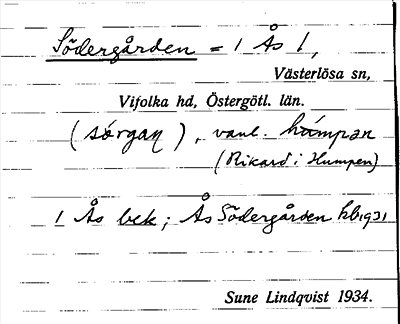 Södergården = 1 Ås 1,
Västerlösa sn,
Vifolka hd, Östergötl. län.
(sórgaɳ), vanl. hámpən
(Rikard i Humpen)
1 Ås bek; Ås Södergården kb 1931
Sune Lindqvist 1934.